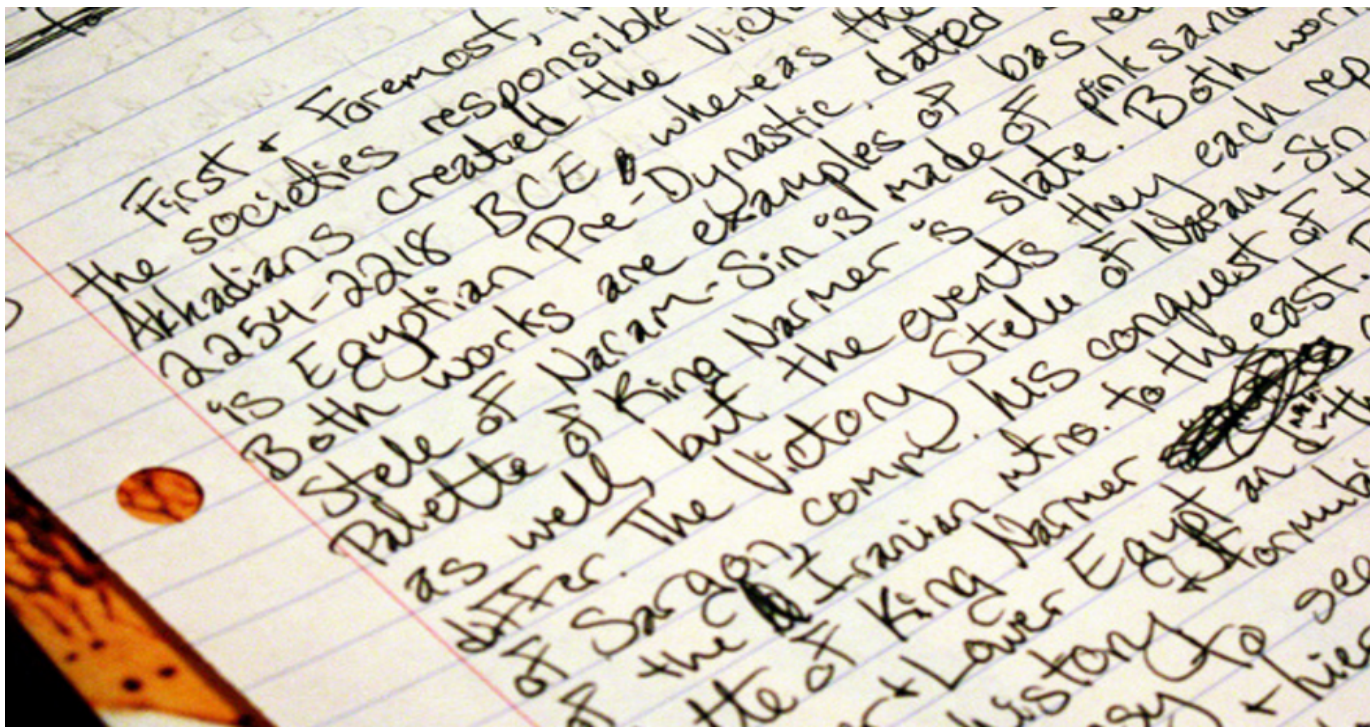 First + Foremost,
the societies responsible
Akkadians created the Vict
2254-2218 BCE, whereas the
is Egyptian Pre-Dynastic, dated
Both works are examples of bas re
Stele of Naram-Sin is made of pink sand
Palette of King Narmer is slate. Both wor
as well, but the events they each rep
differ. The Victory Stele of Naram-Sin
of Sargon, comm. his conquest of t
of the Iranian mtns. to the east
tte of King Narmer
r + Lower Egypt
history + formula
sy to see
+ hier